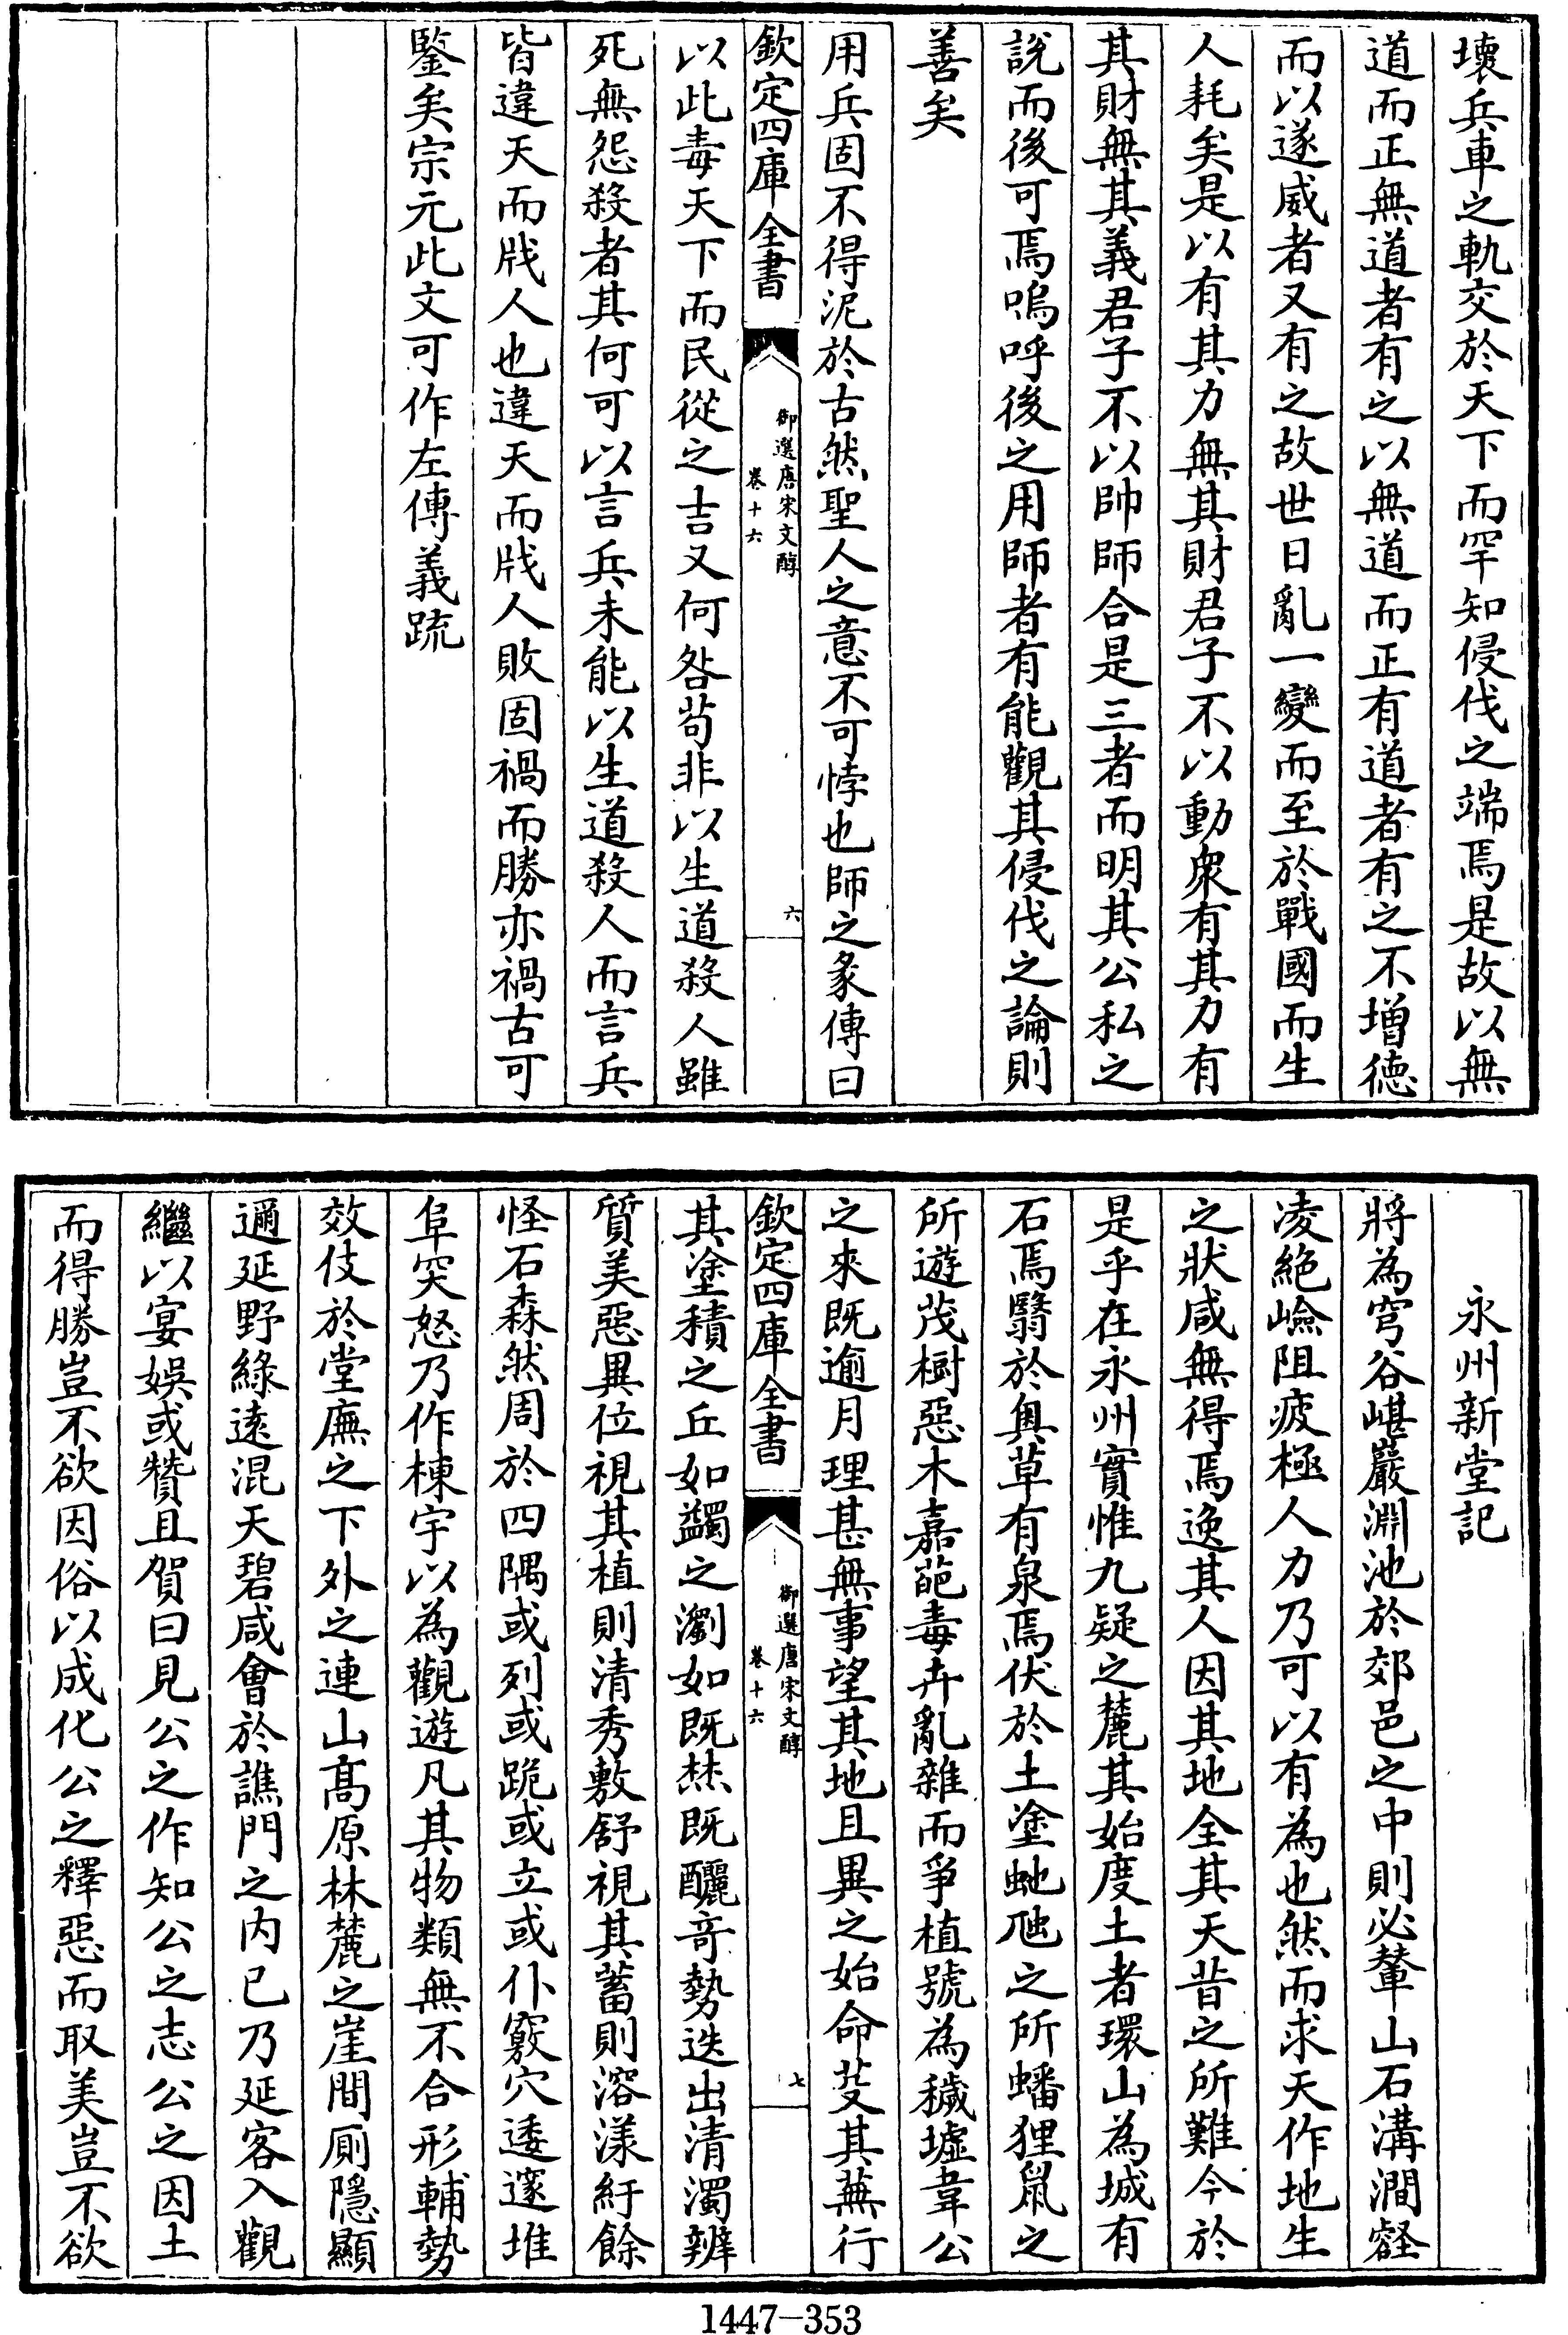 壞兵車之軌交於天下而罕知侵伐之端焉是故以無
道而正無道者有之以無道而正有道者有之不增德
而以遂威者又有之故世日亂一變而至於戰國而生
人耗矣是以有其力無其財君子不以動衆有其力有
其財無其義君子不以帥師合是三者而明其公私之
說而後可焉嗚呼後之用師者有能觀其侵伐之論則
善矣
用兵固不得泥於古然聖人之意不可悖也師之彖傳曰
欽定四庫全書
御選唐宋文醇
卷十六
六
以此毒天下而民從之吉又何咎茍非以生道殺人雖
死無怨殺者其何可以言兵未能以生道殺人而言兵
皆違天而戕人也違天而戕人敗固禍而勝亦禍古可
鑒矣宗元此文可作左傳義疏
永州新堂記
將為穹谷嵁巖淵池於郊邑之中則必輦山石溝澗壑
凌絶嶮阻疲極人力乃可以有為也然而求天作地生
之狀咸無得焉逸其人因其地全其天昔之所難今於
是乎在永州實惟九疑之麓其始度土者環山為城有
石焉翳於奥草有泉焉伏於土塗虵虺之所蟠狸鼠之
所遊茂樹惡木嘉葩毒卉亂雜而爭植號為穢墟韋公
之來既逾月理甚無事望其地且異之始命芟其蕪行
欽定四庫全書
御選唐宋文醇
卷十六
七
其塗積之丘如蠲之瀏如既焚既釃竒勢迭出清濁辨
質美惡異位視其植則清秀敷舒視其蓄則溶漾紆餘
怪石森然周於四隅或列或跪或立或仆竅穴逶邃堆
阜突怒乃作棟宇以為觀遊凡其物類無不合形輔勢
效伎於堂廡之下外之連山髙原林麓之崖間厠隱顯
邇延野綠遠混天碧咸㑹於譙門之内已乃延客入觀
繼以宴娛或贊且賀曰見公之作知公之志公之因土
而得勝豈不欲因俗以成化公之釋惡而取美豈不欲
1447-353